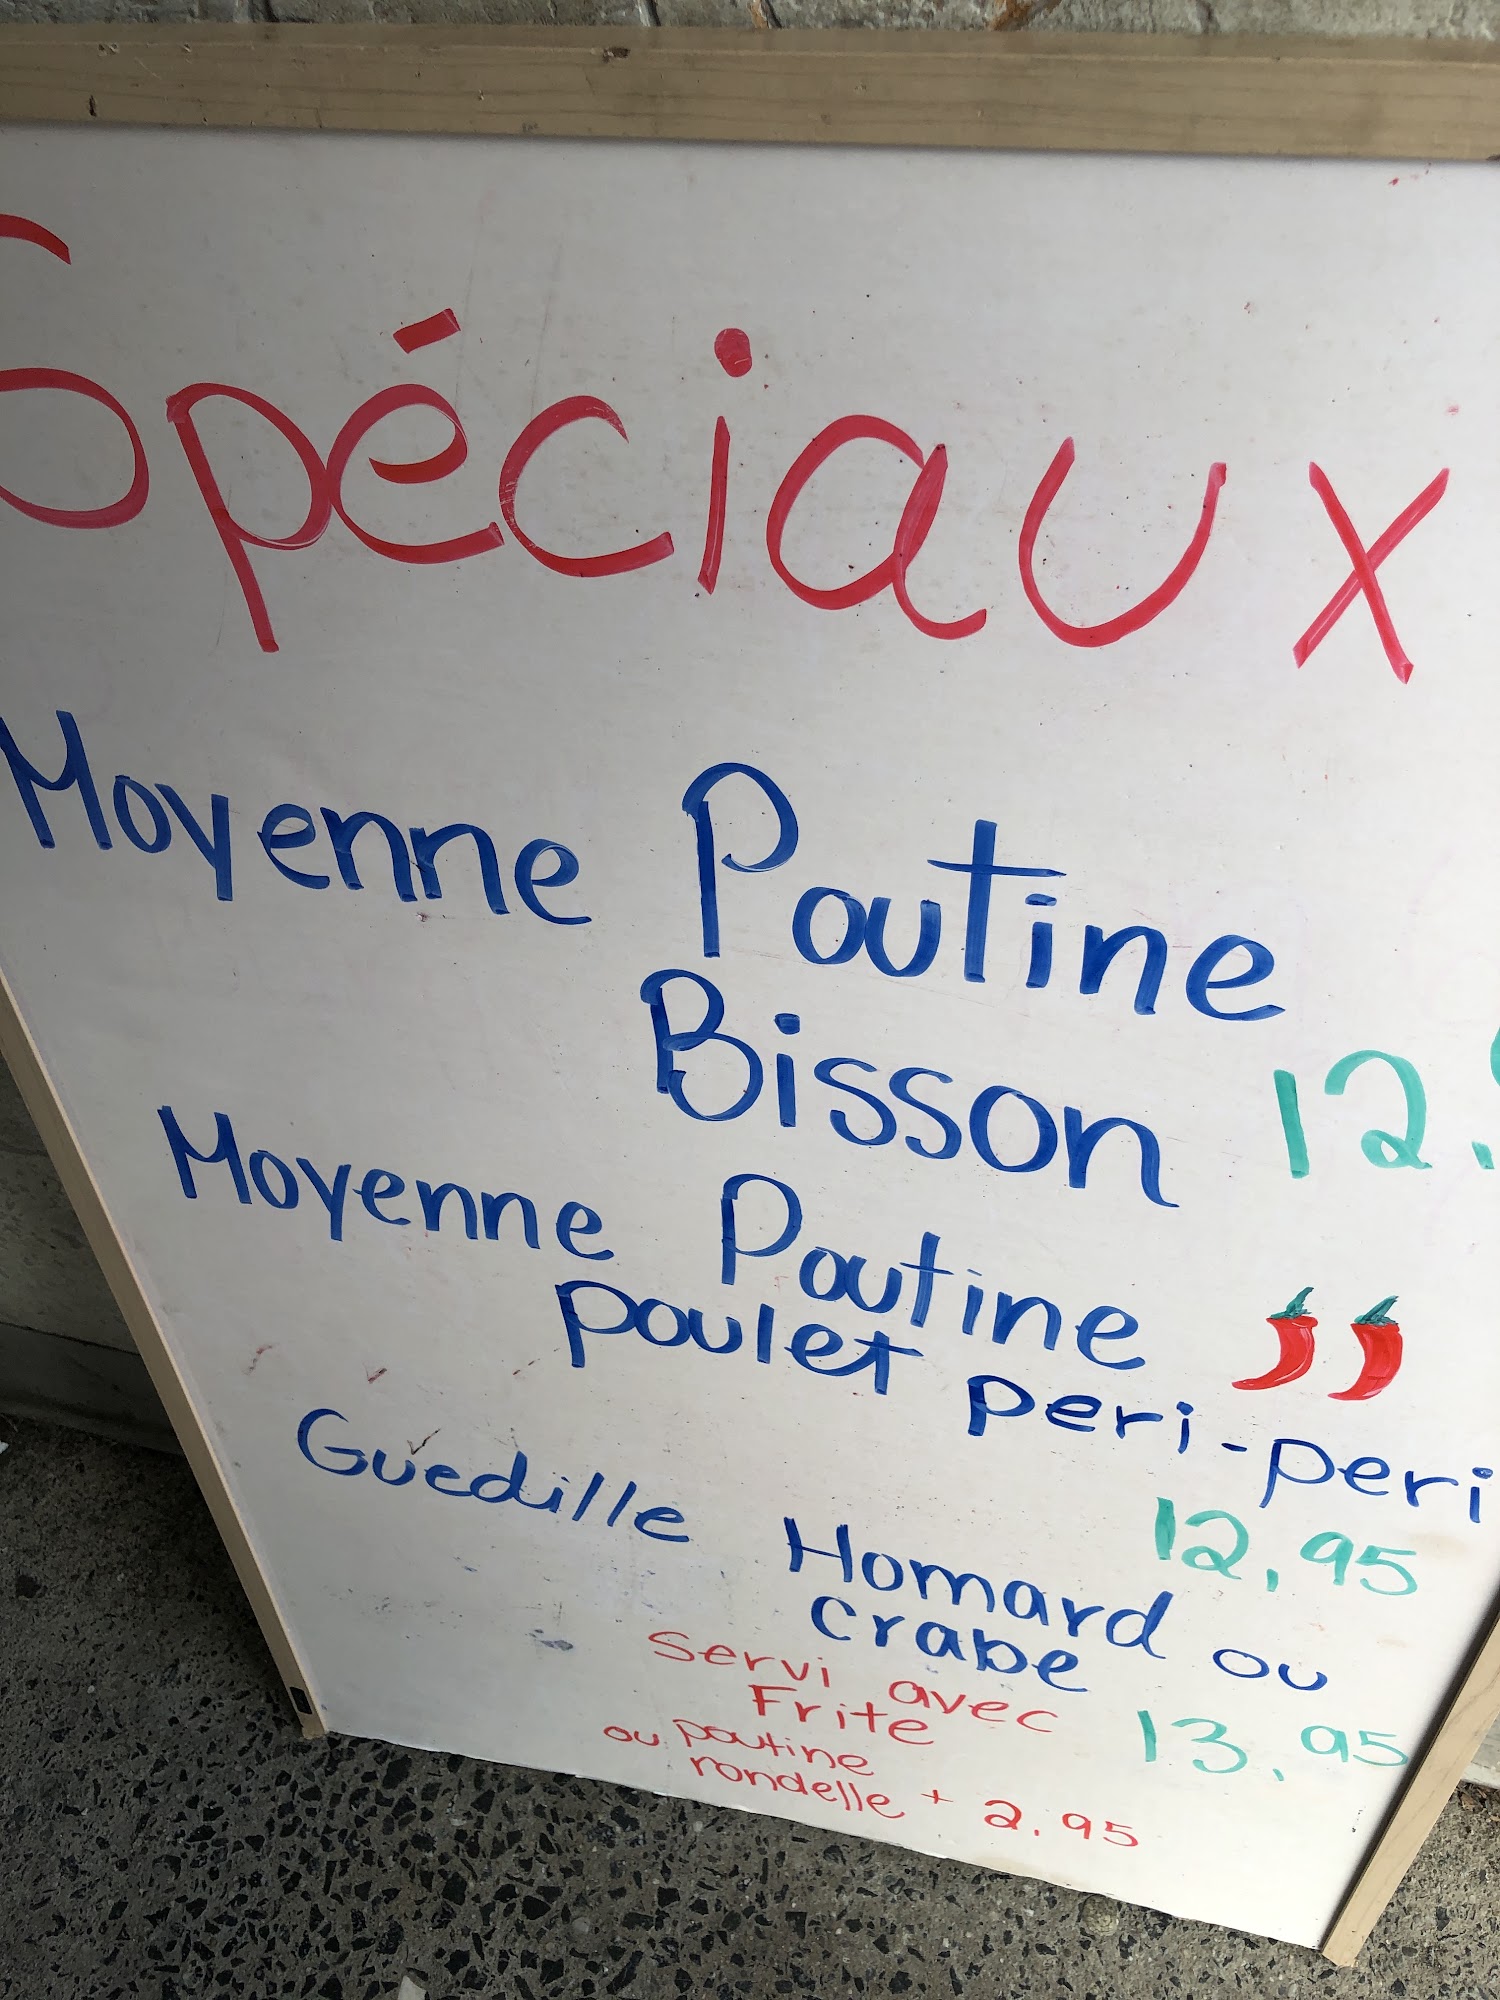 Spéciaux
Moyenne Poutine
Bisson 12.
Moyenne Poutine
poulet peri-peri
12,95
Guedille Homard ou
crabe
13,95
servi avec
Frite
ou poutine
rondelle + 2.95